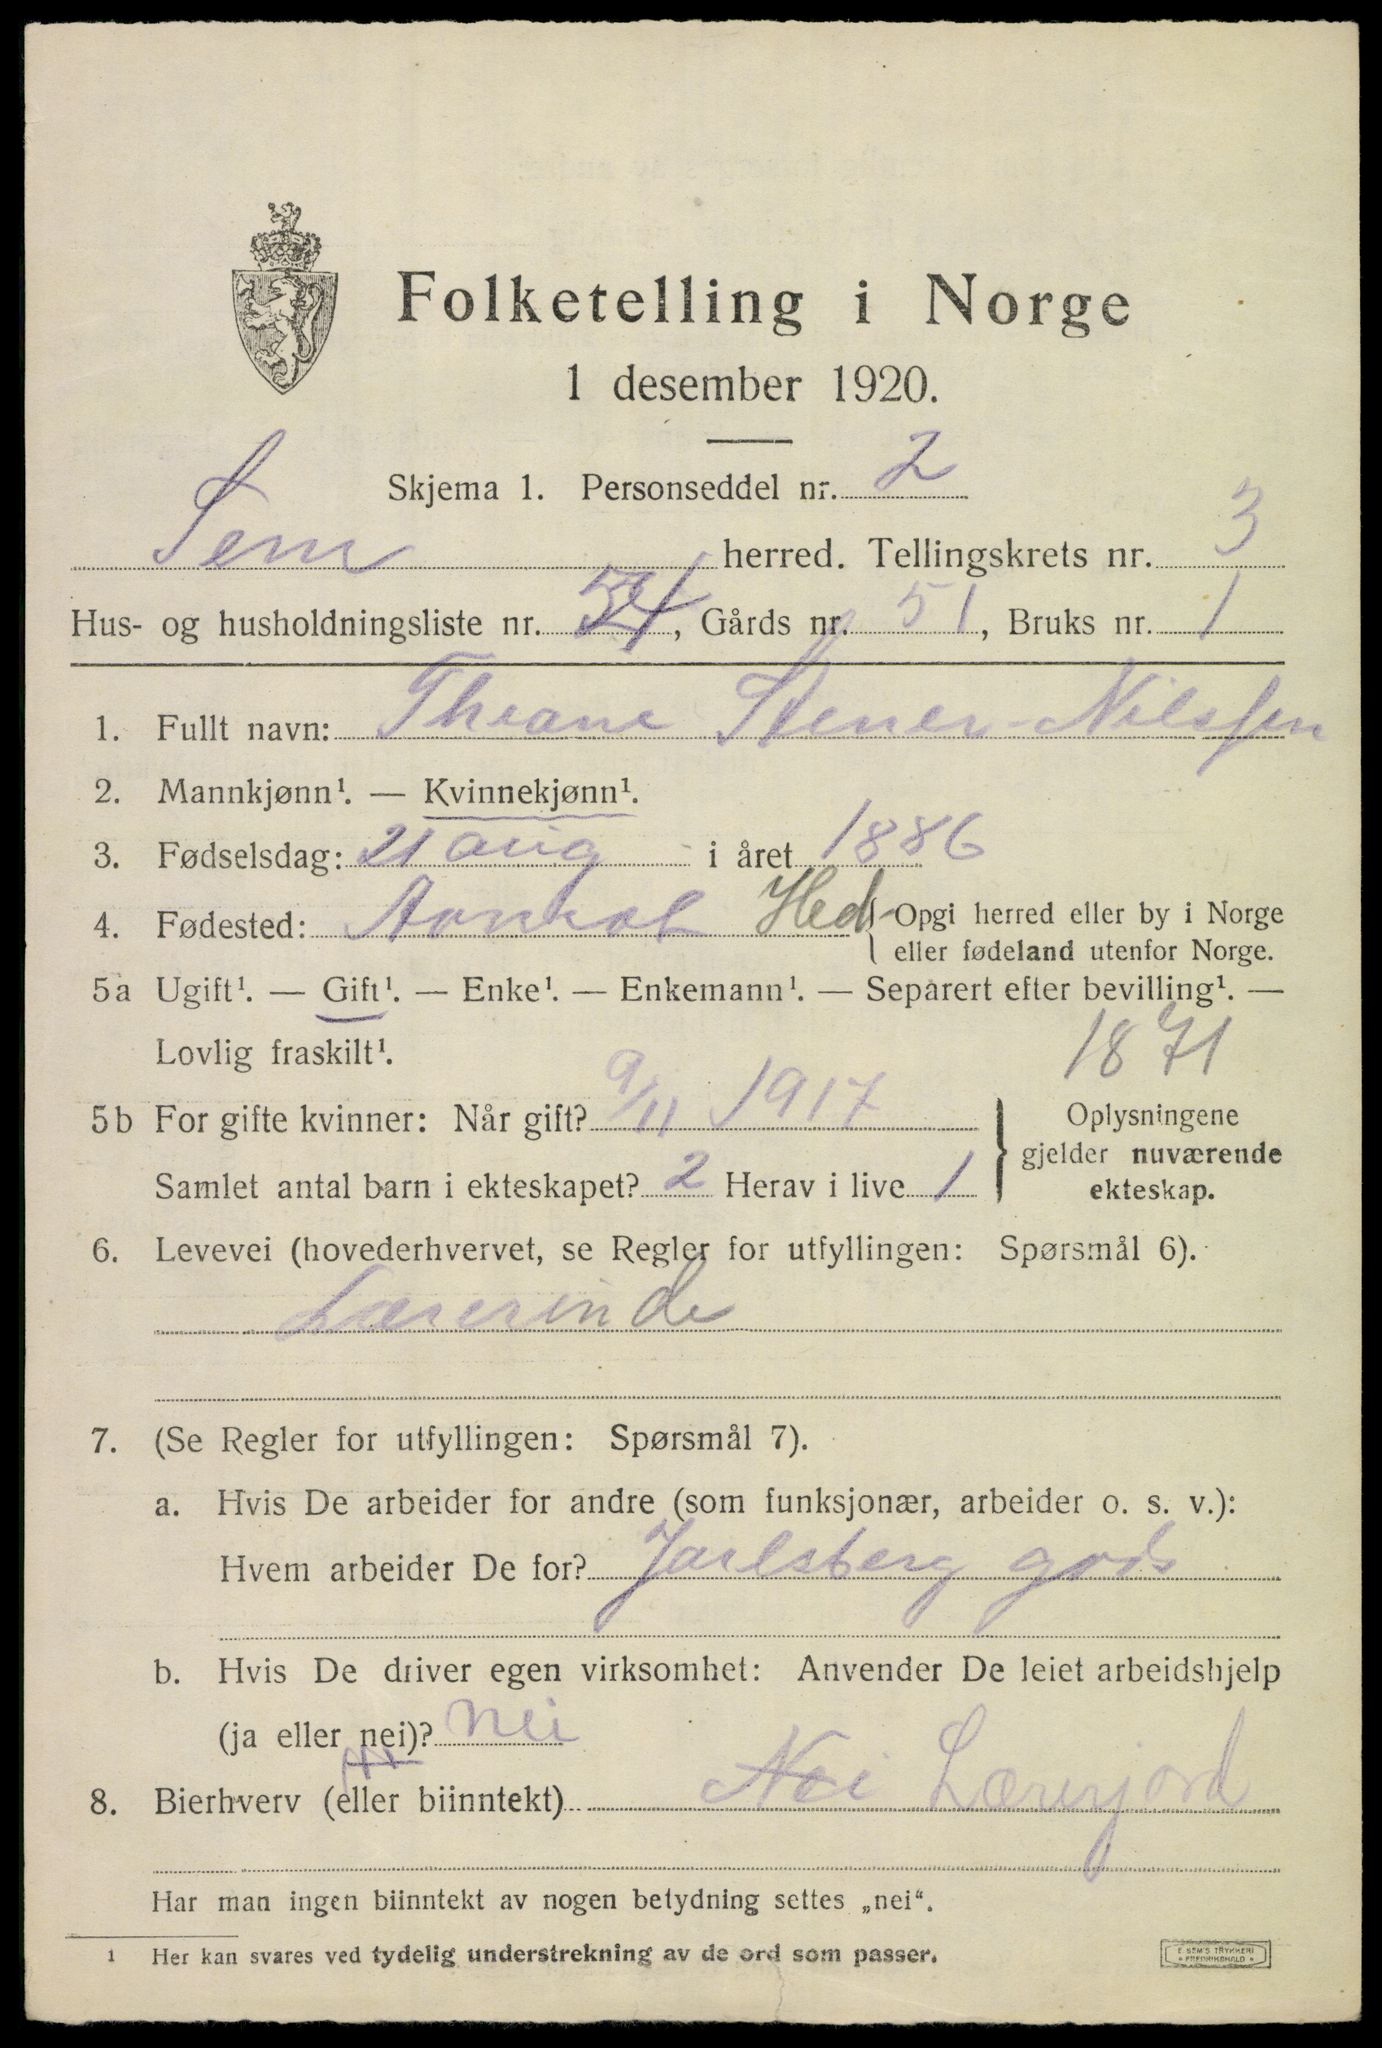 Folketelling i Norge
1 desember 1920.
Skjema 1. Personseddel nr. 2
Sem herred. Tellingskrets nr. 3
Hus- og husholdningsliste nr. 54, Gårds nr. 51, Bruks nr. 1
1. Fullt navn: Theane Stener-Nilssen
2. Mannkjønn¹. — Kvinnekjønn¹.
3. Fødselsdag: 21 aug i året 1886
4. Fødested: Hed { Opgi herred eller by i Norge
eller fødeland utenfor Norge.
5a Ugift¹. — Gift¹. — Enke¹. — Enkemann¹. — Separert efter bevilling¹. —
Lovlig fraskilt¹. 1871
5b For gifte kvinner: Når gift? 9/11 1917
Samlet antal barn i ekteskapet? 2 Herav i live 1
} Oplysningene
gjelder nuværende
ekteskap.
6. Levevei (hovederhvervet, se Regler for utfyllingen: Spørsmål 6).
Lærerinde
7. (Se Regler for utfyllingen: Spørsmål 7).
a. Hvis De arbeider for andre (som funksjonær, arbeider o. s. v.):
Hvem arbeider De for? Jarlsberg gods
b. Hvis De driver egen virksomhet: Anvender De leiet arbeidshjelp
(ja eller nei)? nei
8. Bierhverv (eller biinntekt) Nei Lærerjord
Har man ingen biinntekt av nogen betydning settes „nei“.
1 Her kan svares ved tydelig understrekning av de ord som passer.
E. SEM'S TRYKKERI
FREDRIKSHALD